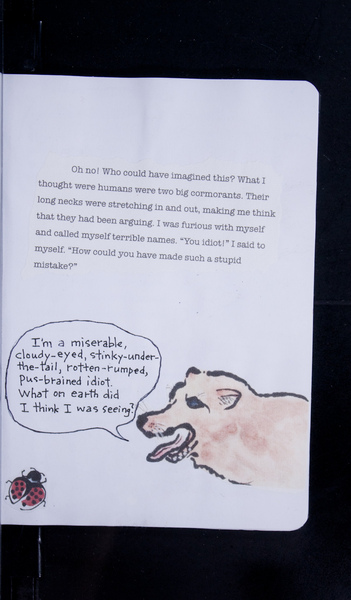 Oh no! Who could have imagined this? What I
thought were humans were two big cormorants. Their
long necks were stretching in and out, making me think
that they had been arguing. I was furious with myself
and called myself terrible names. “You idiot!” I said to
myself. “How could you have made such a stupid
mistake?”
I'm a miserable,
cloudy-eyed, stinky-under-
the-tail, rotten-rumped,
pus-brained idiot.
What on earth did
I think I was seeing?